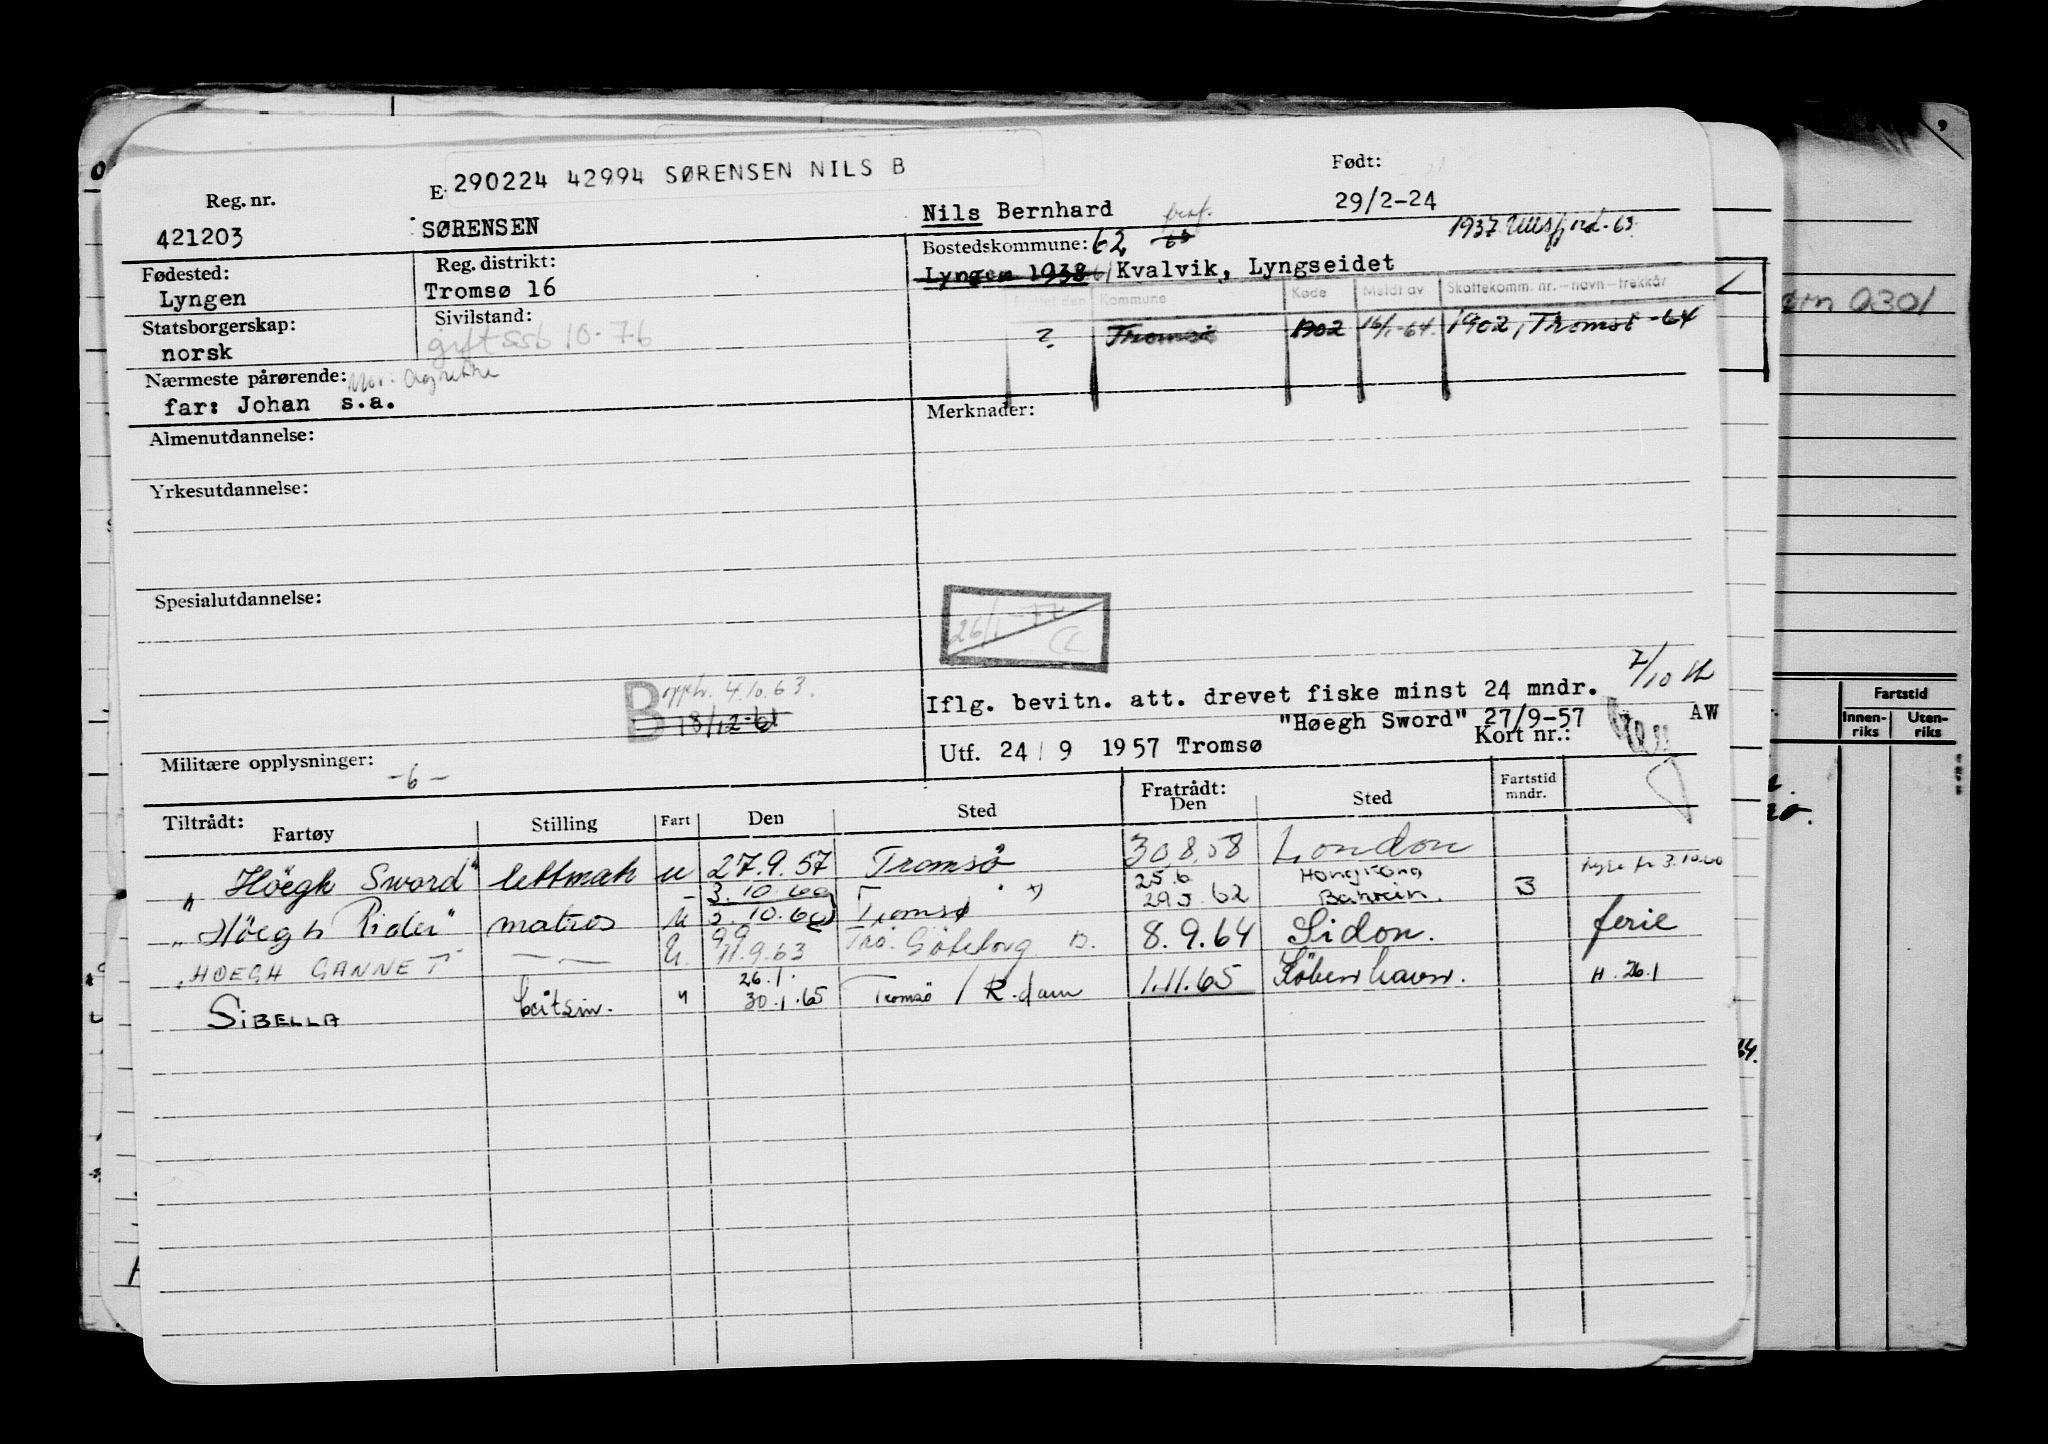 290224 42994 SØRENSEN NILS B
Reg. nr.
E.
Født:
421203
SØRENSEN
Nils Bernhard
29/2-24
Fødested:
Reg. distrikt:
Bostedskommune: 62
1937 Ullsfjord - 63
Lyngen
Tromsø 16
Lyngen 1938 Kvalvik, Lyngseidet
Statsborgerskap:
Sivilstand:
Flyttet den Kommune Kode Meldt av Skattekomm. nr. - navn - trekkår
norsk
gift ssb 10-76
? Tromsø 1902 16/1-64. 1902, Tromsø -64
Nærmeste pårørende: Mor: Agnethe
far: Johan s.a.
Almenutdannelse:
Merknader:
Yrkesutdannelse:
Spesialutdannelse:
26/1-77
B opph. 4.10.63.
18/12-61
Iflg. bevitn. att. drevet fiske minst 24 mndr.
7/10
"Høegh Sword" 27/9-57
AW
Utf. 24 / 9 1957 Tromsø
Kort nr.:
Militære opplysninger:
-6-
Tiltrådt:
Fartøy
Stilling
Fart
Den
Sted
Fratrådt:
Den
Sted
Fartstid
mndr.
"Höegh Sword" lettmatr u 27.9.57 Tromsø 30.8.58 London
3.10.60 25.6 Hongkong
Hyre fr 3.10.60
"Höegh Rider" matros U 3.10.60 Tromsø x) 29.5.62 Bahrein. B
"HOEGH GANNET" — — U. 9.9 11.9.63 Trø. Göteborg B. 8.9.64 Sidon. ferie
SIBELLA båtsm. u 26.1. 30.1.65 Tromsø / R.dam 1.11.65 København. H. 26.1
0301
Fartstid
Innen-
riks
Uten-
riks